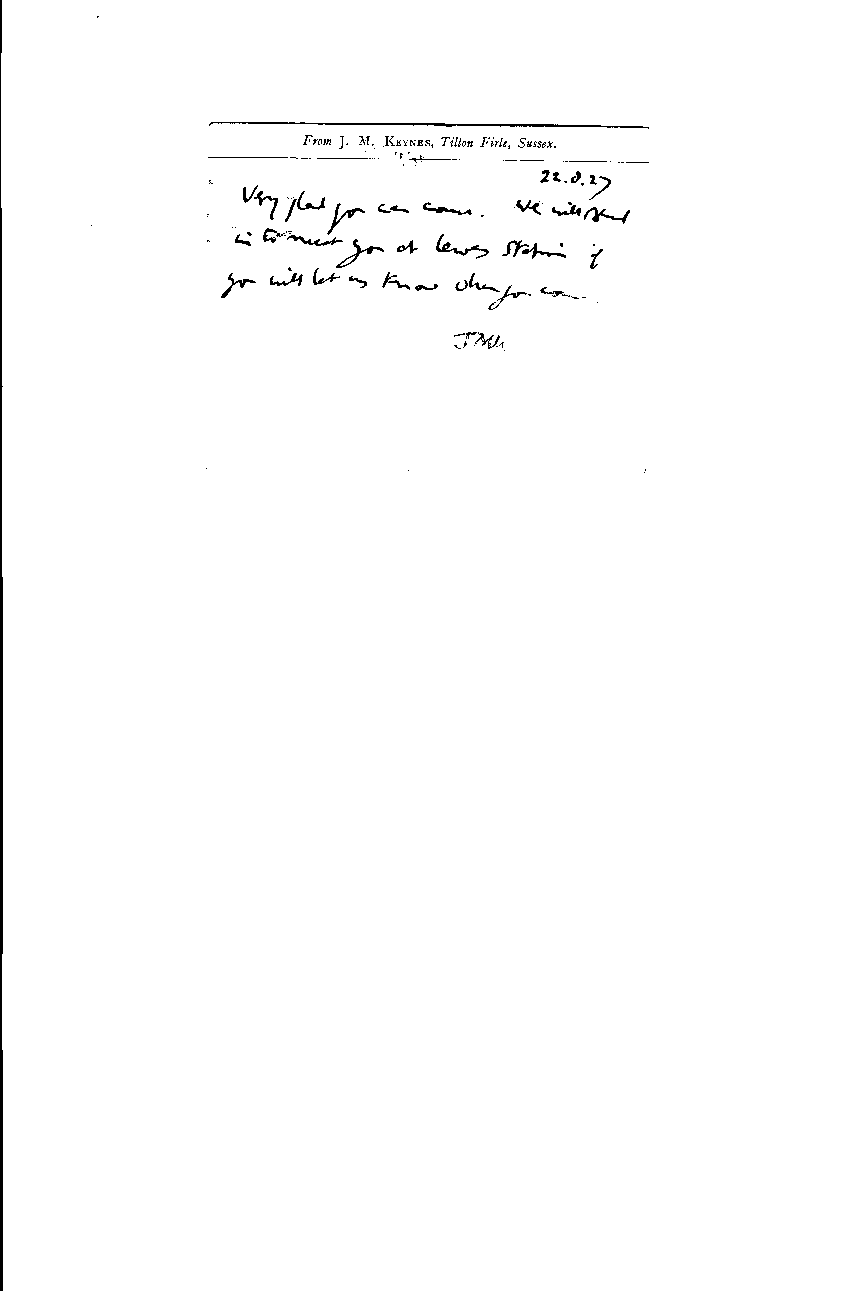 From J. M. KEYNES, Tilton Firle, Sussex.
22.8.27
Very glad you can come. We will send
in to meet you at Lewes Station if
you will let us know when you come.
JMK